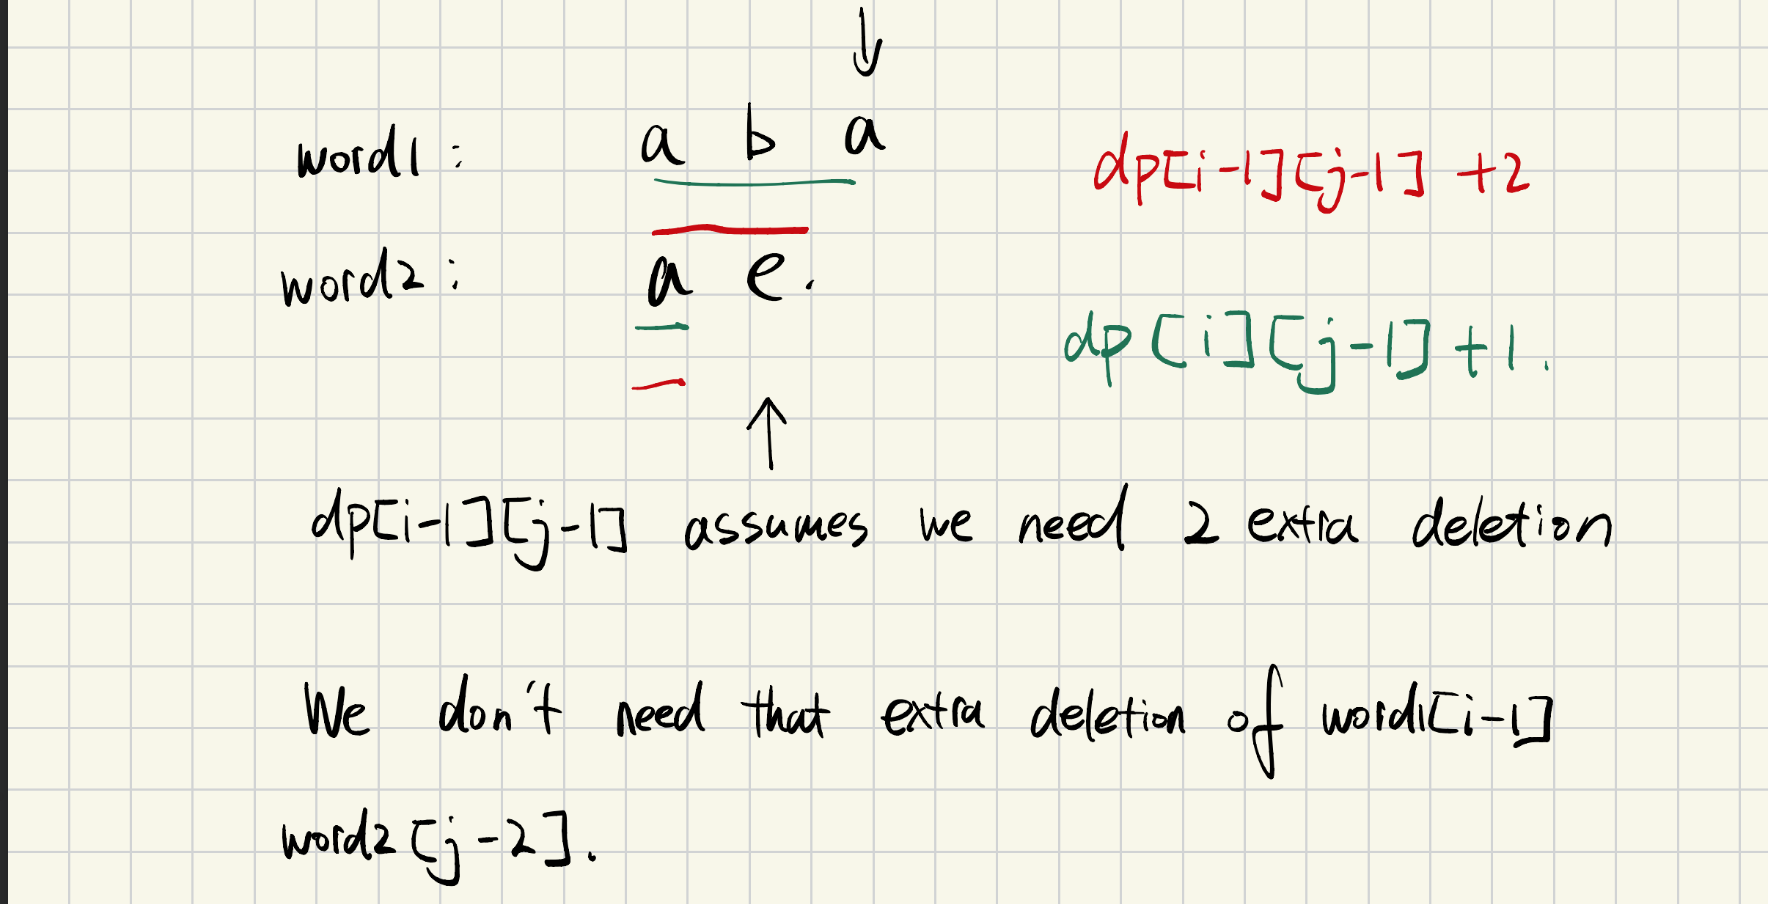 word1: a b a
dp[i-1][j-1] +2
word2: a e.
dp[i][j-1]+1.
dp[i-1][j-1] assumes we need 2 extra deletion
We don't need that extra deletion of word1[i-1]
word2[j-2].